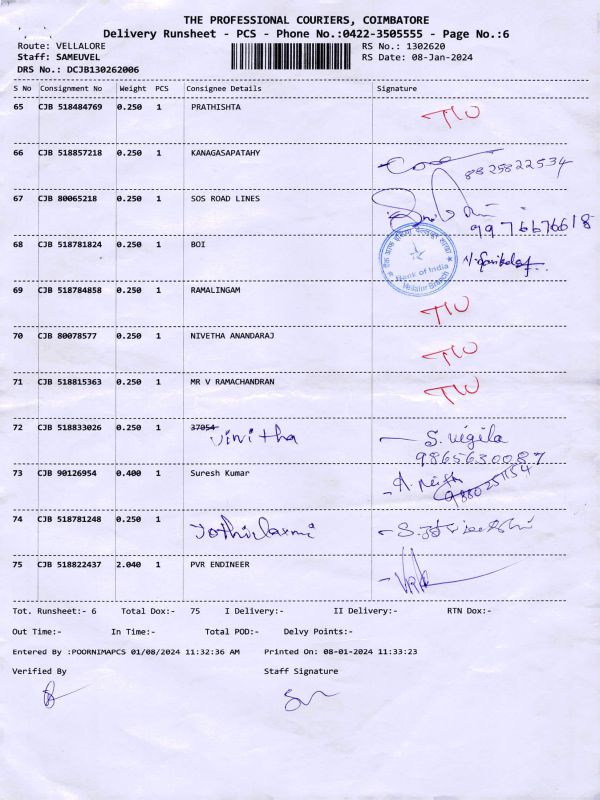 THE PROFESSIONAL COURIERS, COIMBATORE
Delivery Runsheet - PCS - Phone No.:0422-3505555 - Page No.:6
Route: VELLALORE RS No.: 1302620
Staff: SAMEUVEL RS Date: 08-Jan-2024
DRS No.: DCJB130262006
S No Consignment No Weight PCS Consignee Details Signature
65 CJB 518484769 0.250 1 PRATHISHTA
66 CJB 518857218 0.250 1 KANAGASAPATAHY
8825822534
67 CJB 80065218 0.250 1 SOS ROAD LINES
9976676618
68 CJB 518781824 0.250 1 BOI
Bank of India
Vellalur Branch
69 CJB 518784858 0.250 1 RAMALINGAM
70 CJB 80078577 0.250 1 NIVETHA ANANDARAJ
71 CJB 518815363 0.250 1 MR V RAMACHANDRAN
72 CJB 518833026 0.250 1 37054 Vinitha S. Vigila
9865630087
73 CJB 90126954 0.400 1 Suresh Kumar
74 CJB 518781248 0.250 1 Jothilaxmi
75 CJB 518822437 2.040 1 PVR ENDINEER
Tot. Runsheet:- 6 Total Dox:- 75 I Delivery:- II Delivery:- RTN Dox:-
Out Time:- In Time:- Total POD:- Delvy Points:-
Entered By :POORNIMAPCS 01/08/2024 11:32:36 AM Printed On: 08-01-2024 11:33:23
Verified By Staff Signature